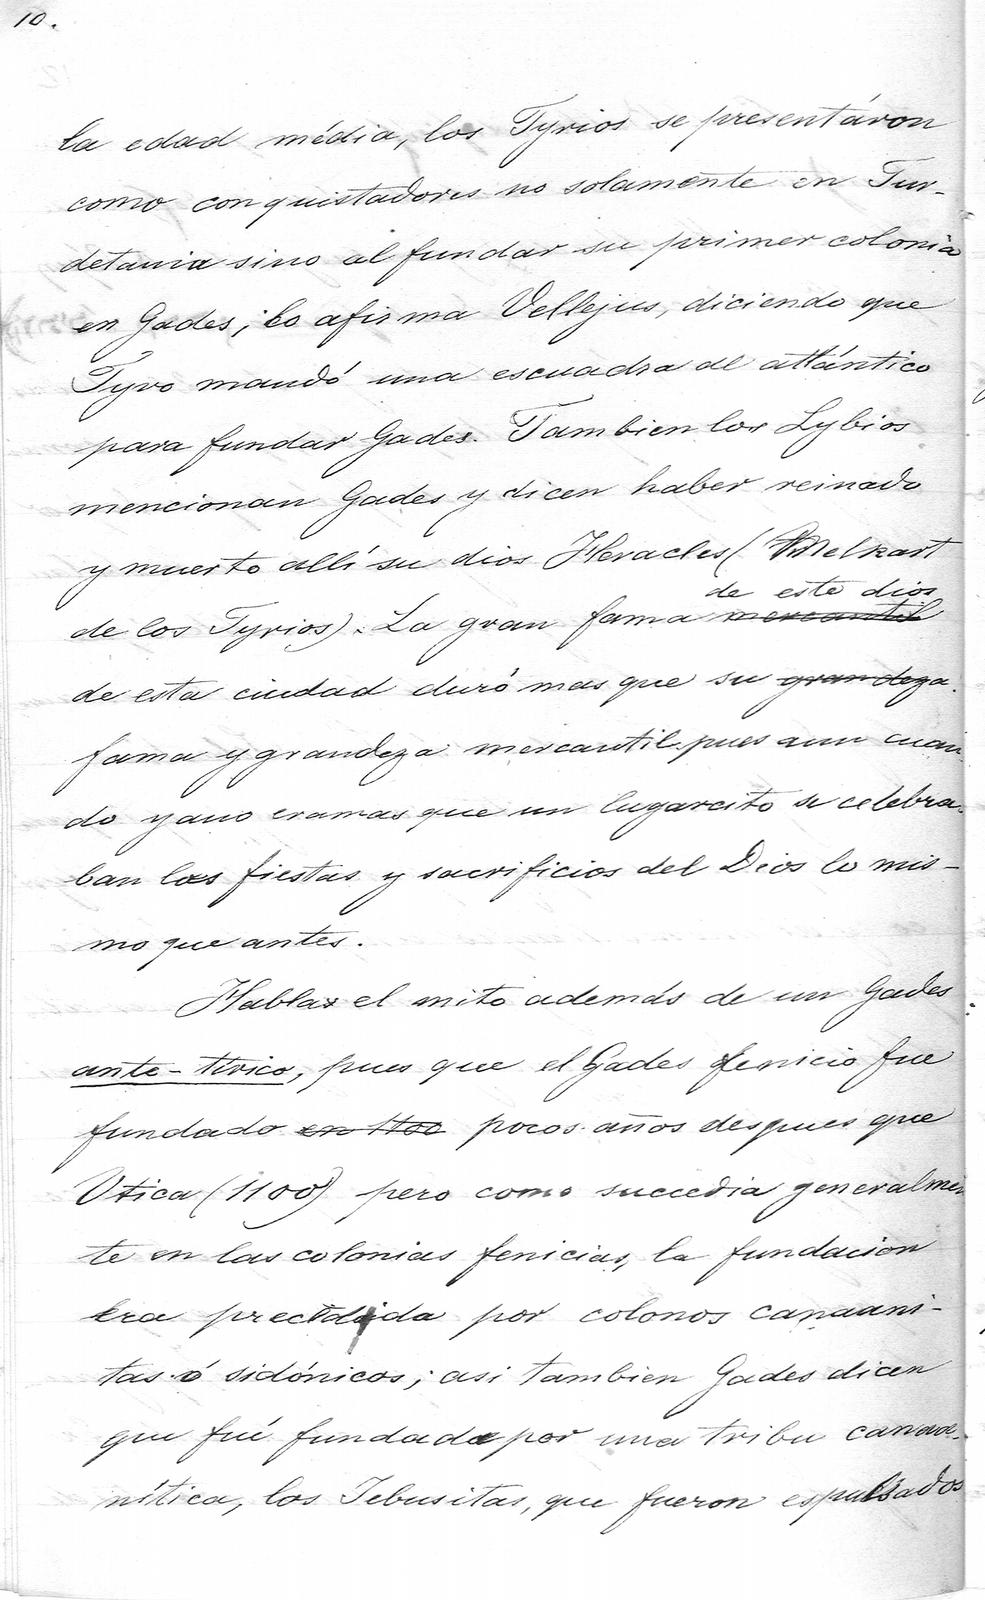 10.
la edad média, los Tyrios se presentáron
como conquistadores no solamente en Tur-
detania sino al fundar su primer colonia
en Gades; lo afirma Vellejus, diciendo que
Tyro mandó una escuadra al atlántico
para fundar Gades. Tambien los Lybios
mencionan Gades y dicen haber reinado
y muerto allí su dios Heracles (Melkart
de este dios
de los Tyrios). La gran fama mercantil
de esta ciudad duró mas que su grandeza.
fama y grandeza mercantil pues aun cuan-
do ya no era mas que un lugarcito se celebra-
ban las fiestas y sacrificios del Dios lo mis-
mo que antes.
Habla el mito además de un Gades
ante-tirico, pues que el Gades fenicio fue
fundado en 1100 pocos años despues que
Utica (1100) pero como succedia generalmen
te en las colonias fenicias, la fundacion
era precedida por colonos canaani-
tas ó sidónicos; asi tambien Gades dicen
que fué fundada por una tribu canaa-
nítica, los Jebusitas, que fueron espulsados